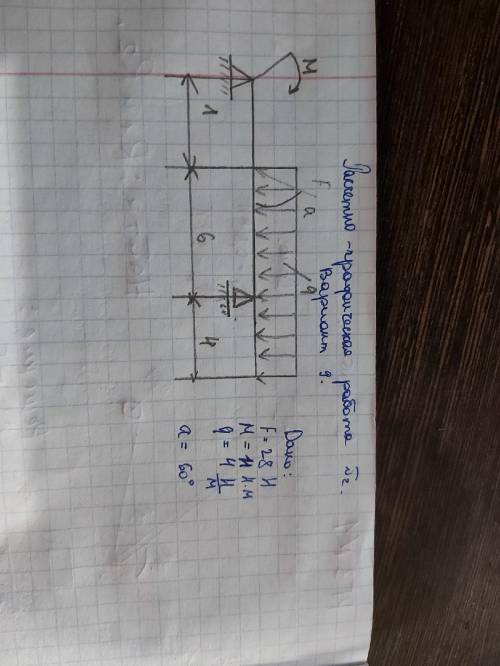 Расчетно-графическая работа №2.
Вариант 9.
M
F
a
q
1
6
4
Дано:
F = 28 Н
M = 11 Н·м
q = 4 Н/м
a = 60°